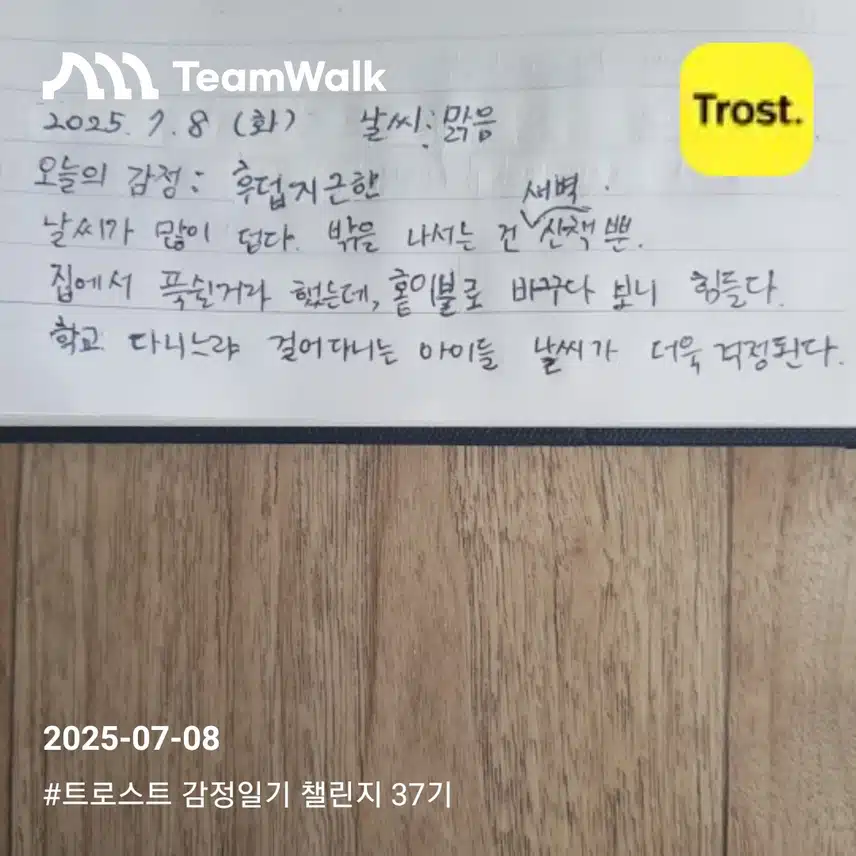 TeamWalk
Trost.
2025. 7. 8 (화) 날씨: 맑음
오늘의 감정: 후덥지근한
날씨가 많이 덥다. 밖을 나서는 건 새벽 산책 뿐.
집에서 푹쉴거라 했는데, 홑이불로 바꾸다 보니 힘들다.
학교 다니느랴 걸어다니는 아이들 날씨가 더욱 걱정된다.
2025-07-08
#트로스트 감정일기 챌린지 37기